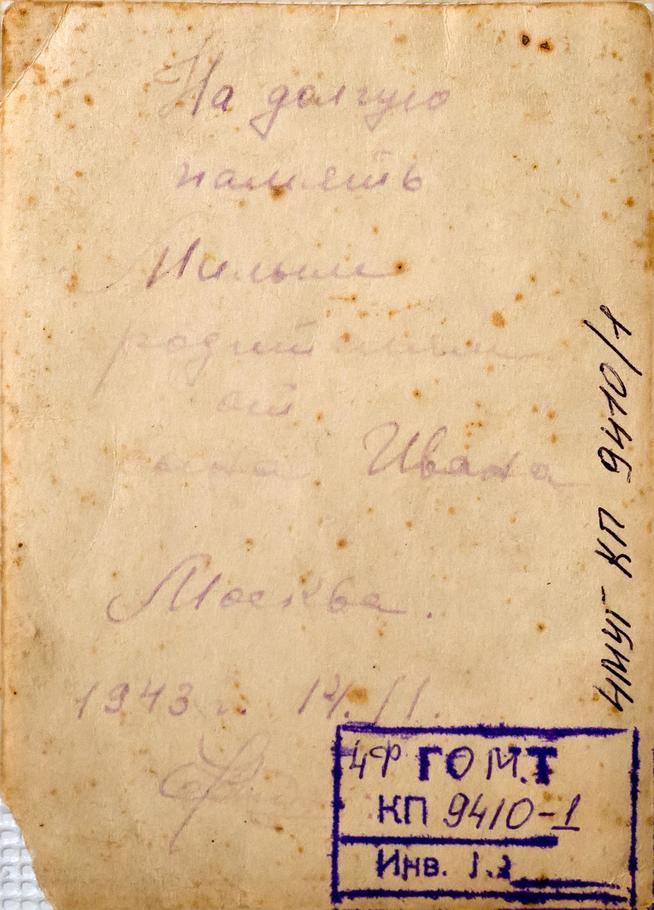 На долгую
память
Милым
родителям
от
сына Ивана
Москва.
1943 г. 14.II.
ЧФ ГОМТ
КП 9410-1
Инв. 1.2
ЧМУГ КП 9410/1